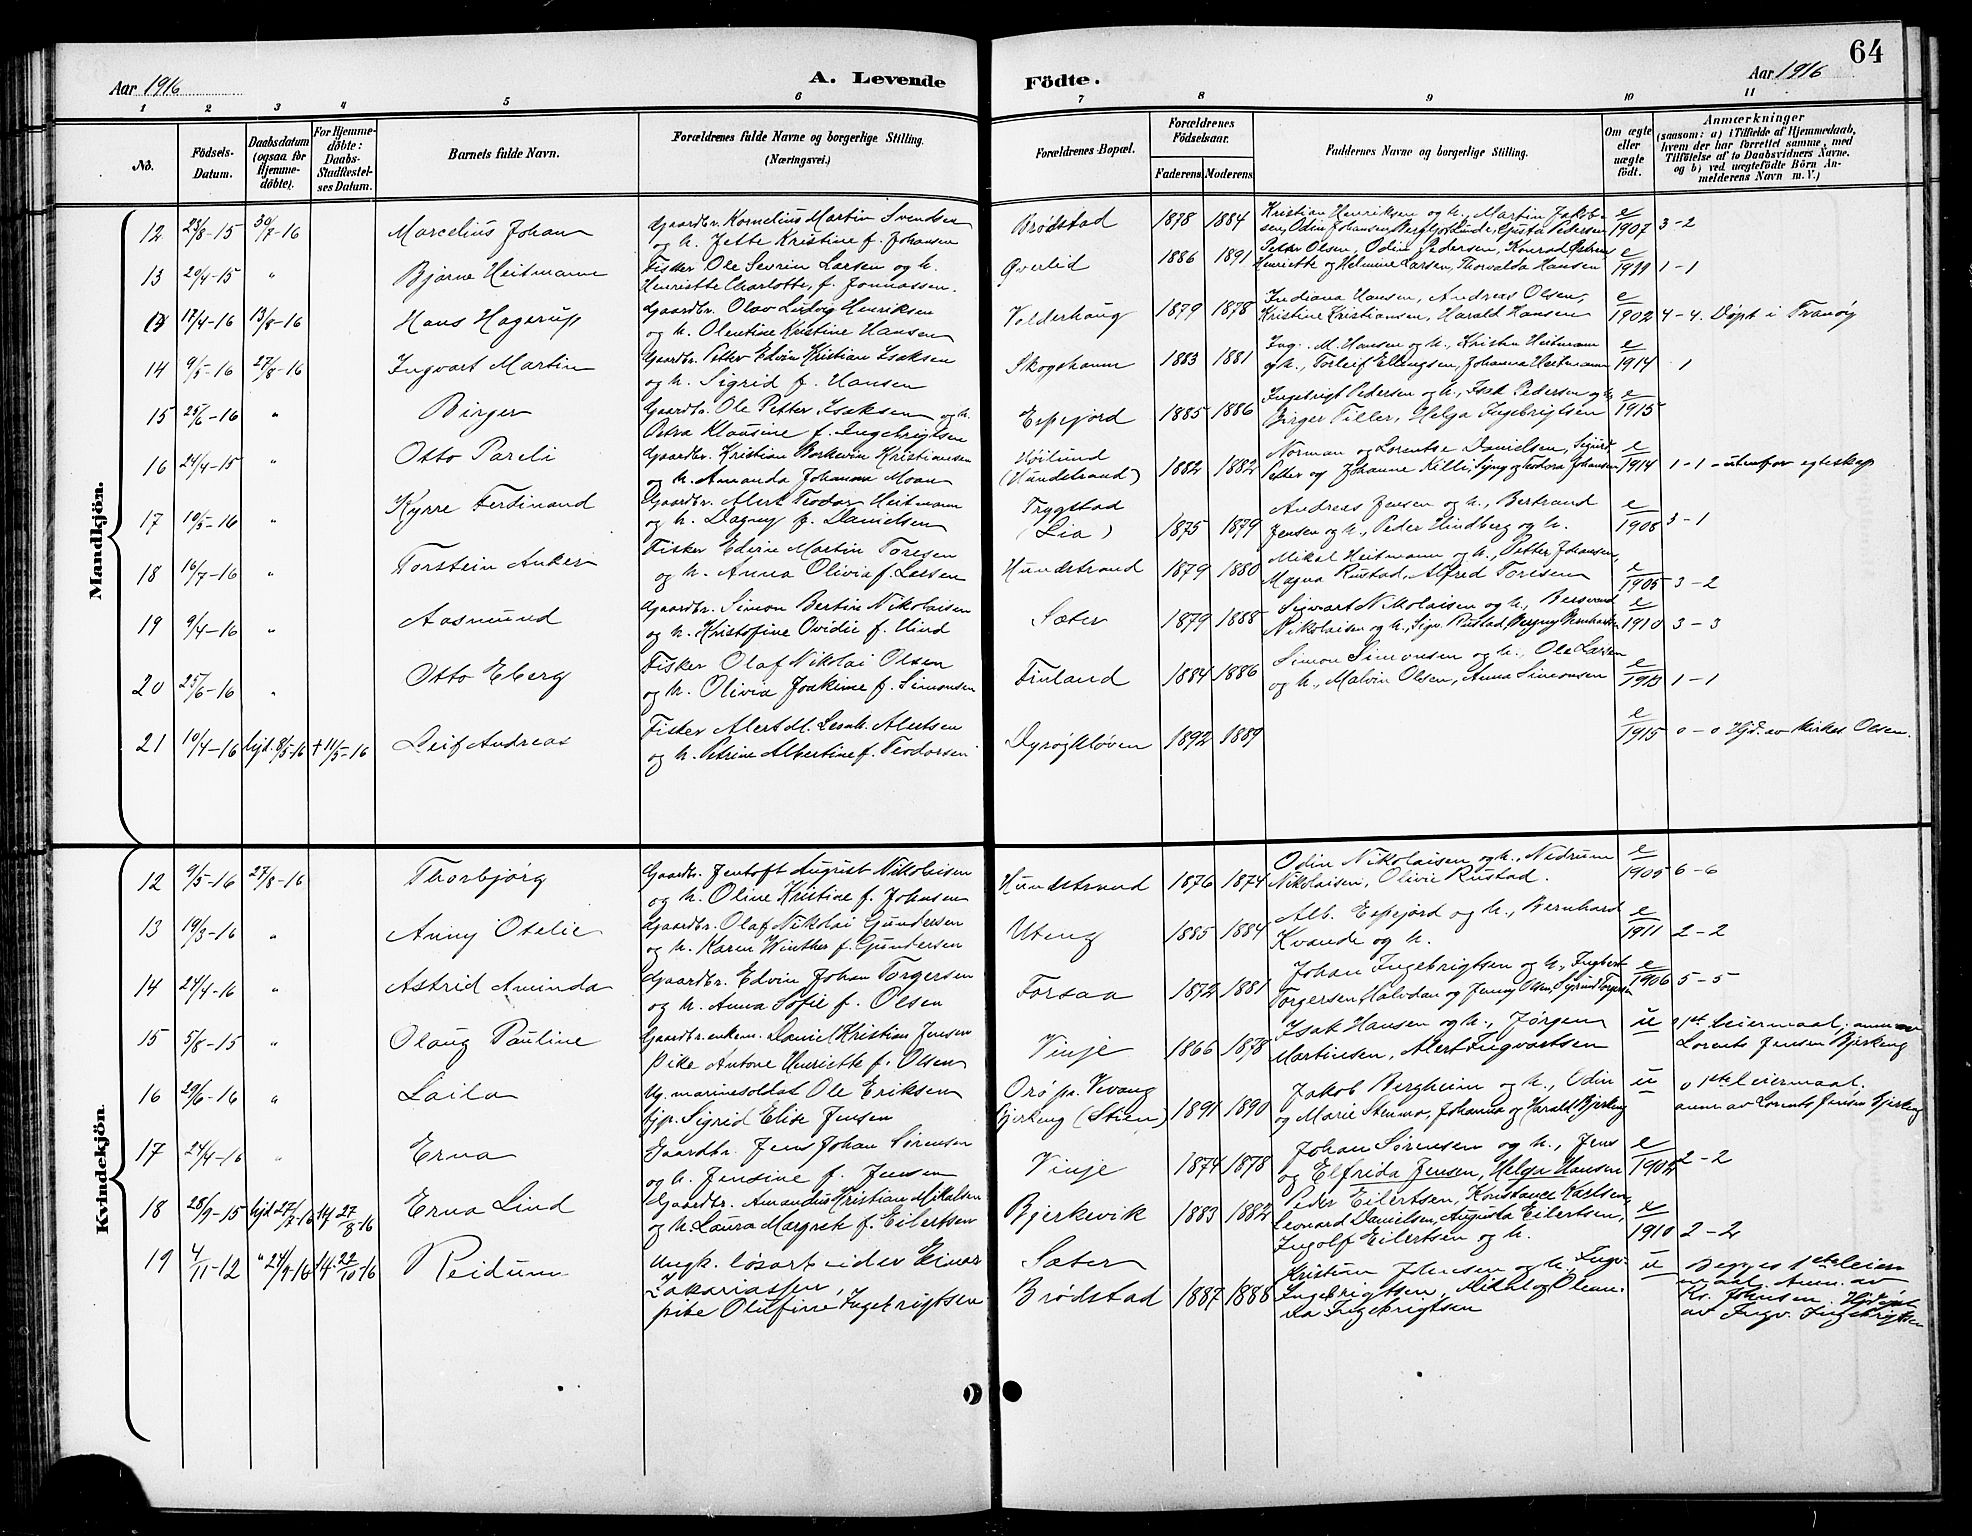 64
Aar 1916
A. Levende
Födte.
Aar 1916
1 2 3 4 5 6 7 8 9 10 11
No.
Födsels-Datum.
Daabsdatum (ogsaa for Hjemmedöbte).
For Hjemmedöbte: Daabs-Stadfæstelses Datum.
Barnets fulde Navn.
Forældrenes fulde Navne og borgerlige Stilling.
(Næringsvei.)
Forældrenes Bopæl.
Forældrenes Födselsaar.
Faderens Moderens
Faddernes Navne og borgerlige Stilling.
Om ægte eller uægte födt.
Anmærkninger
(saasom: a) i Tilfælde af Hjemmedaab,
hvem der har forrettet samme, med
Tilföielse af to Daabsvidners Navne,
og b) ved uægtefödte Börn An-
melderens Navn m. V.)
Mandkjön.
12 23/8-15 30/7-16 Marcelius Johan Gaardbr. Kornelius Martin Svendsen Brödstad 1878 1884 Kristian Henriksen og h., Martin Jakob- e/1907 3-2
og h. Jette Kristine f. Johansen sen, Odin Johansen Gusta Pedersen
13 20/4-15 " Bjarne Heitmann Fisker Ole Sevrin Larsen og h. Øverlid 1886 1891 Peder Olsen, Odin Pedersen, Konrad e/1911 1-1
Henriette Charlotte, f. Jonnassen. Henriette og Helmine Larsen, Thorvalda Hansen
17/4-16 13/8-16 Hans Hagerup Gaardbr. Olav Ludvig Henriksen Volderhaug 1879 1878 Indiana Hansen, Andreas Olsen, e/1902 4-4. Döpt i Tranöy
og h. Olentine Kristine Hansen Kristine Kristiansen, Harald Hansen
14 9/5-16 27/8-16 Ingvart Martin Gaardbr. Petter Edvin Kristian Isaksen Skogshamn 1883 1881 Ing. M. Hansen og h., Kristen Heitmann e/1914 -1
og h. Sigrid f. Hansen og h., Torleif Ellingsen, Johanna Heitmann
15 25/6-16 " Birger Gaardbr. Ole Petter Isaksen og h. Espejord 1885 1886 Ingebrigt Pedersen og h., Isak Pedersen og h. e/1915
Petra Klausine f. Ingebrigtsen Birger Tiller, Helga Ingebrigtsen
16 24/4-15 " Otto Pareli Gaardbr. Kristian Kristiansen Høilund 1882 1882 Norman og Lorentse Danielsen, Sigurd e/1914 1-1 - utenfor egteskap
og h. Amanda Johanna Moan (Hundstrand) Petter og Johanne Killi, Signy og Teodora Johansen
17 10/5-16 " Kyrre Ferdinand Gaardbr. Alert Teodor Heitmann Trygstad 1875 1879 Andreas Jensen og h., Bertrand e/1906 3-1
og h. Dagny f. Danielsen (Lia) Jensen og h., Peder Hindberg og h.
18 16/7-16 " Torstein Anker Fisker Edvin Martin Toresen Hundstrand 1879 1880 Mikal Heitmann og h., Petter Johansen, e/1905 3-2
og h. Anna Olivia f. Larsen Magna Rustad, Alfred Toresen
19 9/4-16 " Aasmund Gaardbr. Simon Bertin Nikolaisen Sæter 1879 1888 Sigvart Nikolaisen og h., e/1910 3-3
og h. Kristofine Ovidie f. Hind Nikolaisen og h., Sigv. Rustad,
20 25/6-16 " Otto Eberg Fisker Olaf Nikolai Olsen Finland 1884 1886 Simon Simonsen og h., Ole Larsen e/1913 1-1
og h. Olivia Joakime f. Simonsen og h., Malvin Olsen, Anna Simonsen
21 10/4-16 hjd. 8/5-16 + 11/5-16 Leif Andreas Fisker Alert M. Leonh. Alertsen Dyrøykløven 1892 1889 e/1915 0-0 Hjd. av kirkes. Olsen.
og h. Petrine Albertine f. Teodorsen
Kvindekjön.
12 9/5-16 27/8-16 Thorbjörg Gaardbr. Jentoft August Nikolaisen Hundstrand 1876 1874 Odin Nikolaisen og h., Nedrum e/1905 6-6
og h. Oline Kristine f. Johnsen Nikolaisen, Olivie Rustad.
13 19/3-16 " Anny Otelie Gaardbr. Olaf Nikolai Gundersen Uteng 1885 1884 Alb. Espejord og h., Bernhard e/1911 2-2
og h. Karen Winther f. Gundersen Kvande og h.
14 24/4-16 " Astrid Aminda Gaardbr. Edvin Johan Torgersen Forsaa 1872 1881 Johan Ingebrigtsen og h., Ingbert e/1906 5-5
og h. Anna Sofie f. Olsen Torgersen, Halvdan og Jenny Olsen, Sigrund Torgersen
15 5/8-15 " Olaug Pauline Gaardbr. enkem. Daniel Kristian Jensen Vinje 1866 1878 Isak Hansen og h., Jørgen u 1ste leiermaal; anm. av
Pike Antone Henriette f. Olsen Martinsen, Alert Ingvartsen Lorents Jensen Bjerkeng
16 29/6-16 " Laila Ug. marinesoldat Ole Eriksen Orö pr. Kvang 1891 1890 Jakob Bergheim og h., Odin u 1ste leiermaal.
tjp. Sigrid Elise Jensen Bjerkeng (Stien) og Marie Stenmo, Johanna og Harald Bjerkeng anm. av Lorents Jensen Bjerkeng
17 24/4-16 " Erna Gaardbr. Jens Johan Sörensen Vinje 1874 1878 Johan Sørensen og h., Jens e/1904 2-2
og h. Jensine f. Jensen og Elfrida Jensen, Helga Hansen
18 28/9-15 hjd 27/2-16 27/8-16 Erna Lind Gaardbr. Amandus Kristian Mikalsen Bjerkevik 1883 1882 Peder Eilertsen, Konstance Karlsen, e/1910 2-2
og h. Laura Margrete f. Eilertsen Leonard Danielsen, Augusta Eilertsen,
Ingolf Eilertsen og h.
19 4/11-12 " 24/9-16 22/10-16 Reidun Ungk. løsarbeider Einar Sæter Kristian Johnsen og h., Ingv. u Begges 1ste leier-
Zakariassen, Brödstad 1887 1888 Ingebrigtsen, Mikal og Olean- maal. Anm. av
pike Olufine Ingebrigtsen da Ingebrigtsen Kr. Johnsen. Hjdöpt
av Ingv. Ingebrigtsen